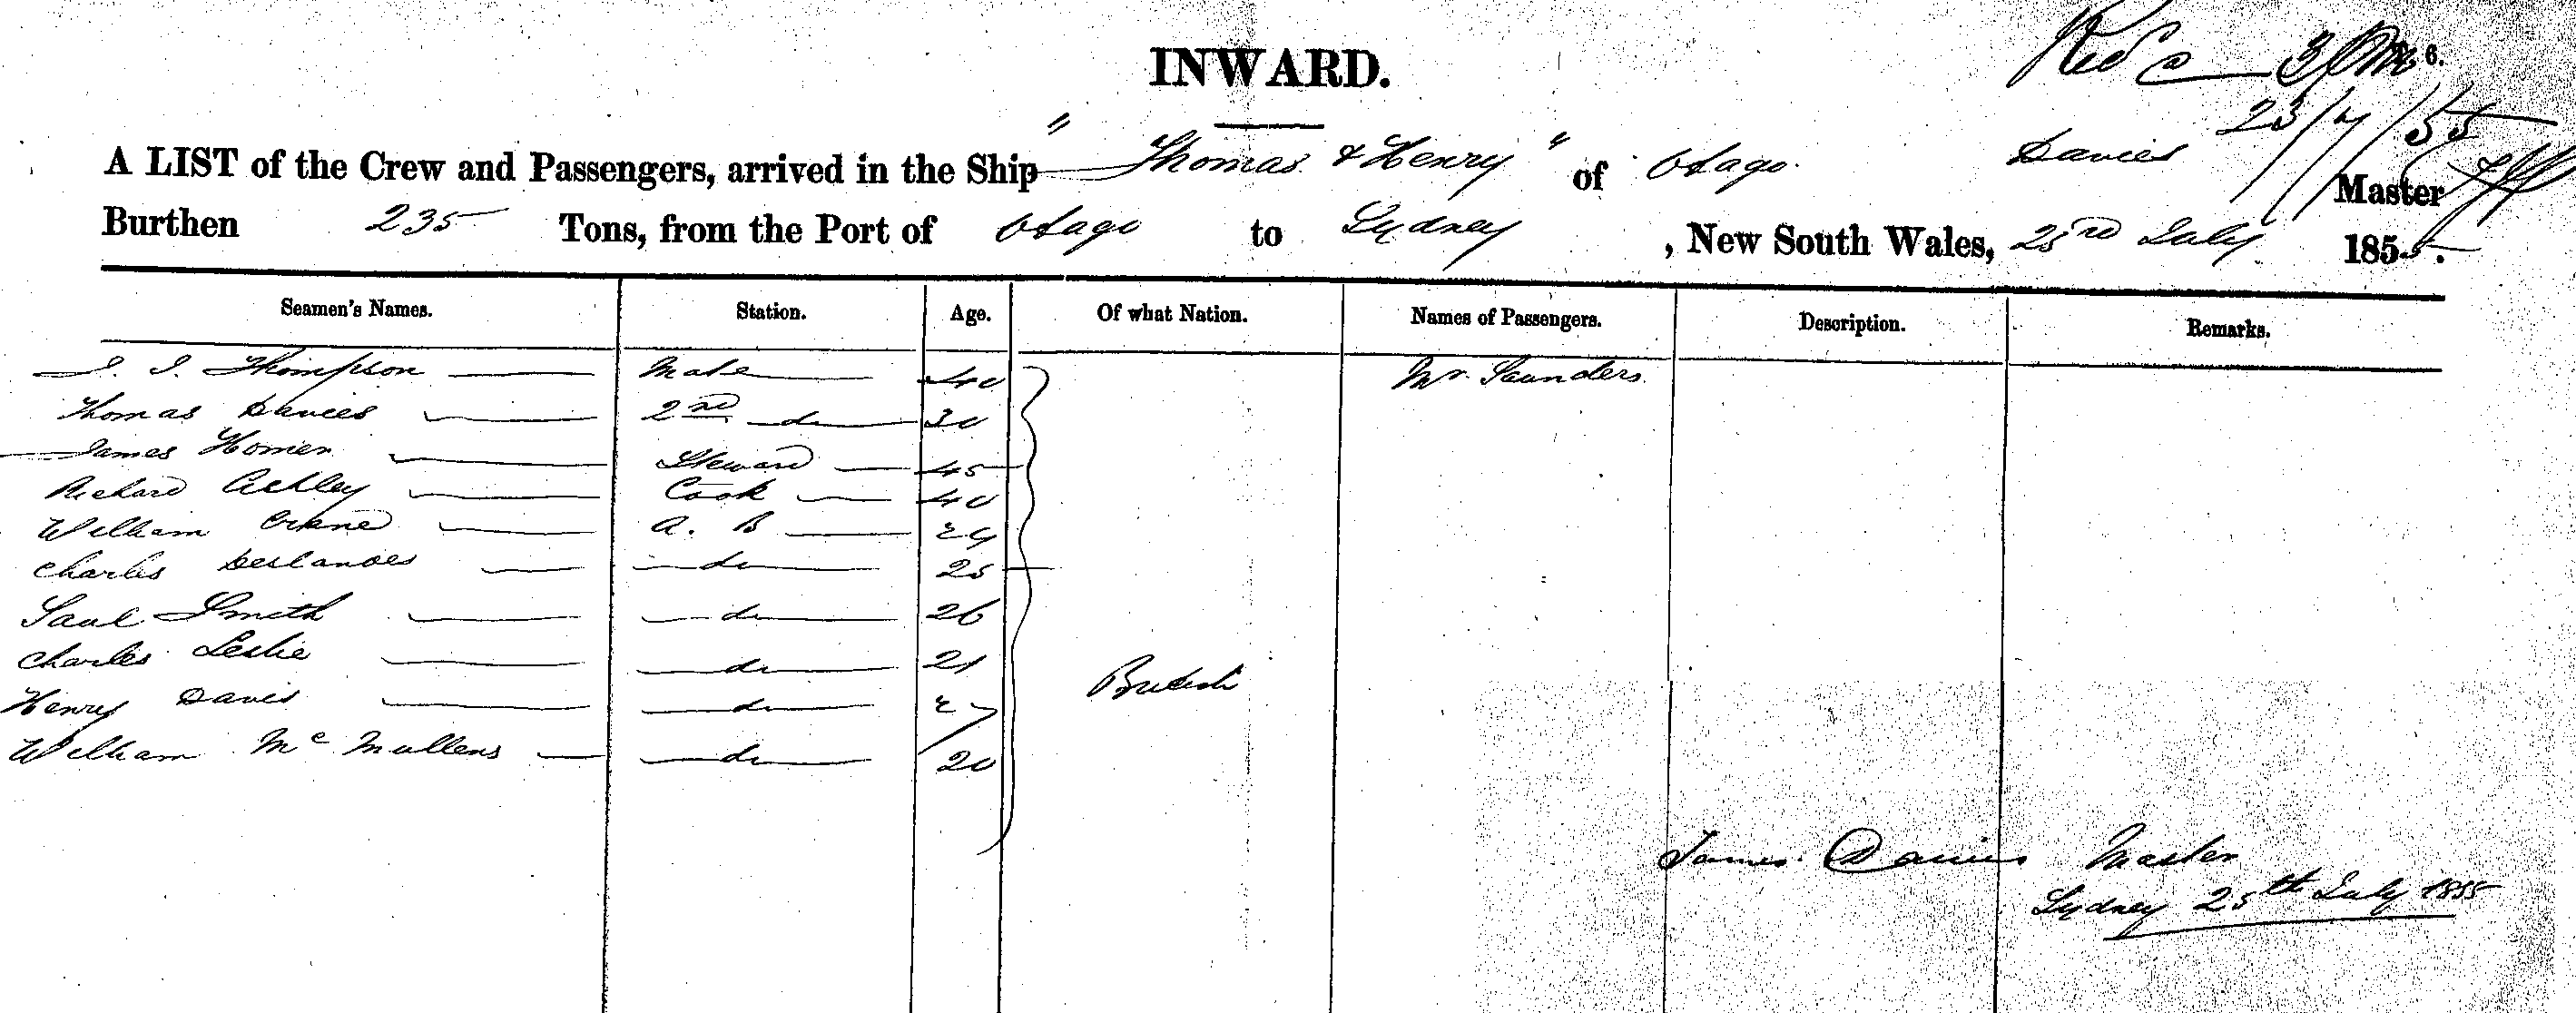 INWARD.
6.
23/7/55
A LIST of the Crew and Passengers, arrived in the Ship "Thomas & Henry" of Otago. Davies Master
Burthen 235 Tons, from the Port of Otago to Sydney, New South Wales, 25rd July 1855.
Seamen's Names. Station. Age. Of what Nation. Names of Passengers. Description. Remarks.
J. J. Thompson Mate 40 Mr. Saunders
Thomas Davies 2nd do 30
James Homer Steward 45
Richard Ackley Cook 40
William Crane A. B 24
Charles Deslandes do 25
Saul Smith do 26
Charles Leslie do 21
Henry Davis do 27
William Mc Mullens do 20
British
James Davies Master
Sydney 25th July 1855